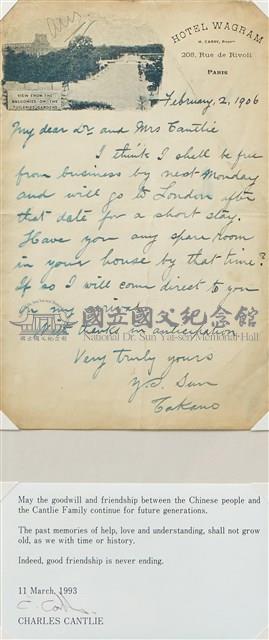 HOTEL WAGRAM
208, Rue de Rivoli
PARIS
VIEW FROM THE
BALCONIES ON THE
TUILERIES GARDENS
February, 2, 1906
My dear Dr. and Mrs Cantlie
I think I shall be free
from business by next Monday
and will go to London after
that date for a short stay.
Have you any spare room
in your house by that time?
If so I will come direct to you
on my arrival.
thanks in anticipation
Very truly yours
Y. S. Sun
Takano
國立國父紀念館
National Dr. Sun Yat-sen Memorial Hall
May the goodwill and friendship between the Chinese people and
the Cantlie Family continue for future generations.
The past memories of help, love and understanding, shall not grow
old, as we with time or history.
Indeed, good friendship is never ending.
11 March, 1993
CHARLES CANTLIE